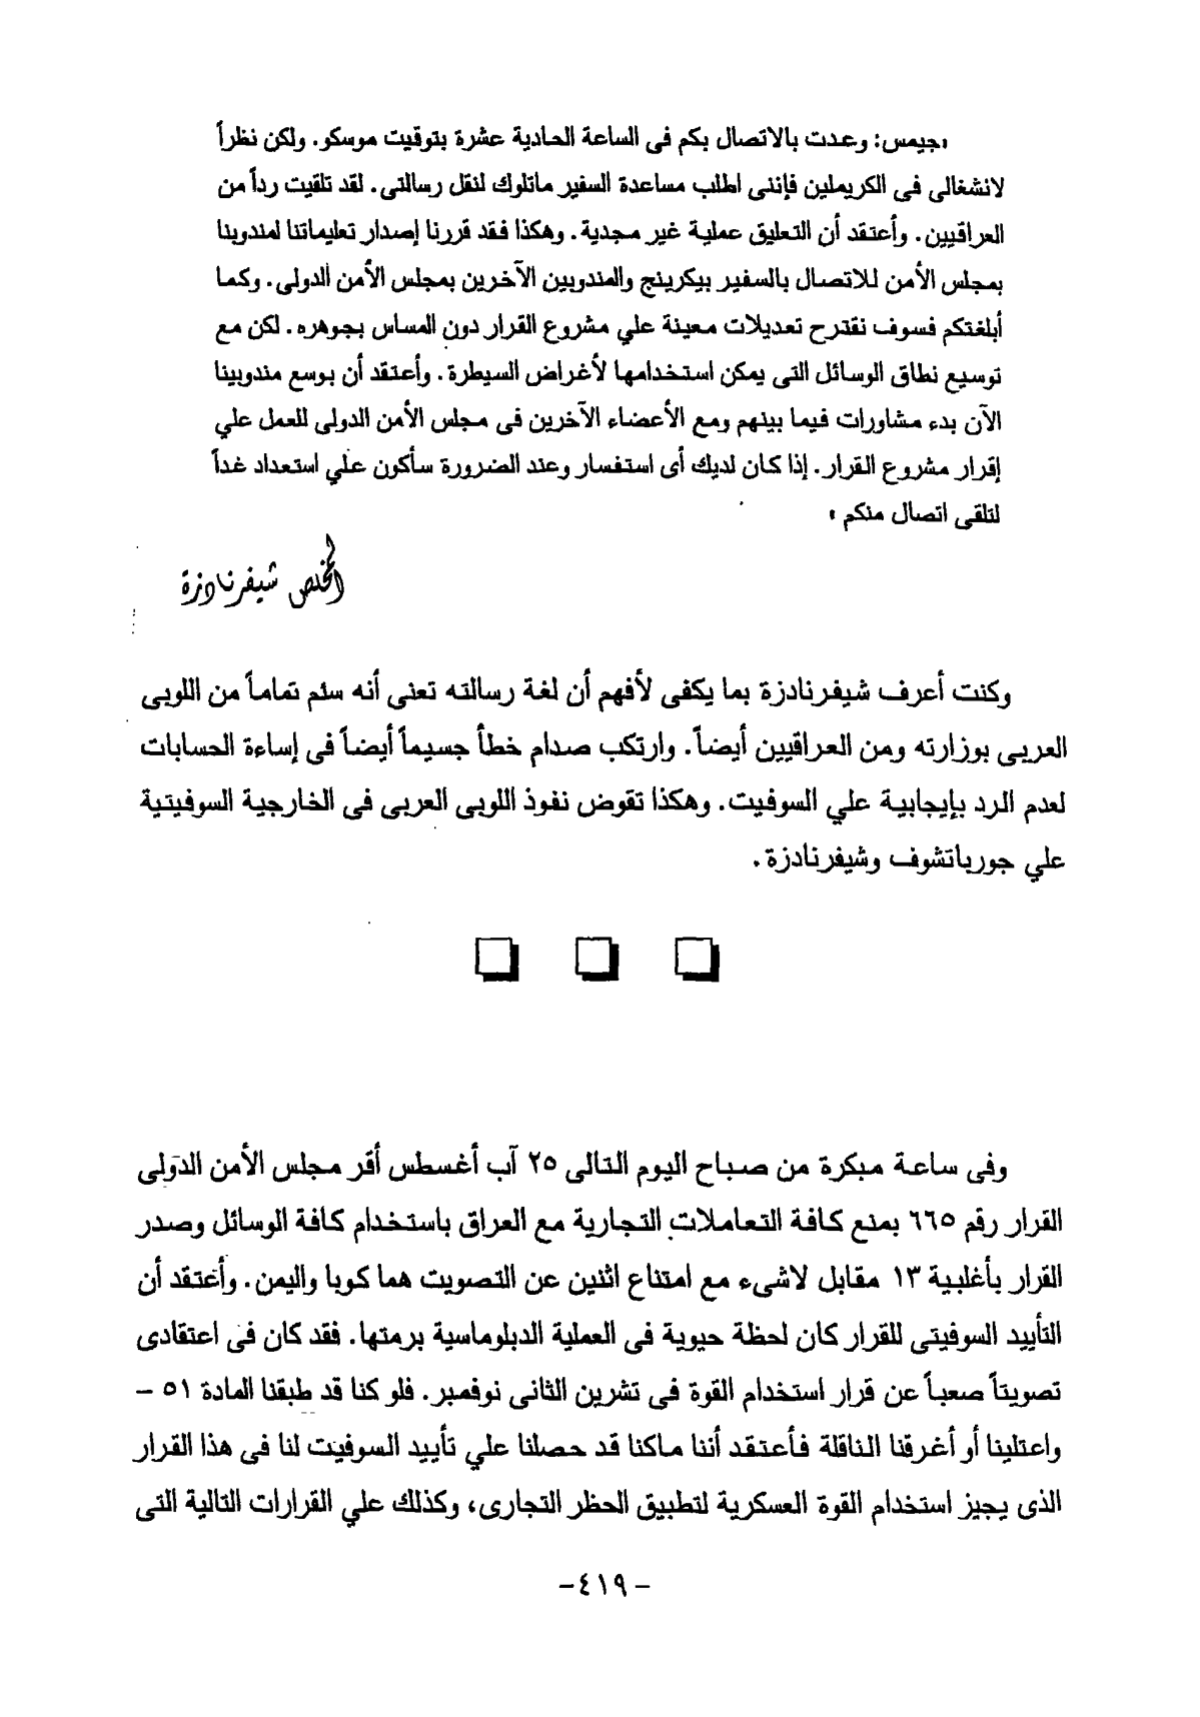 «جيمس: وعدت بالاتصال بكم فى الساعة الحادية عشرة بتوقيت موسكو. ولكن نظراً
لانشغالى فى الكريملين فإننى اطلب مساعدة السفير ماتلوك لنقل رسالتى. لقد تلقيت رداً من
العراقيين. وأعتقد أن التعليق عملية غير مجدية. وهكذا فقد قررنا إصدار تعليماتنا لمندوبنا
بمجلس الأمن للاتصال بالسفير بيكرينج والمندوبين الآخرين بمجلس الأمن الدولى. وكما
أبلغتكم فسوف نقترح تعديلات معينة علي مشروع القرار دون المساس بجوهره. لكن مع
توسيع نطاق الوسائل التى يمكن استخدامها لأغراض السيطرة. وأعتقد أن بوسع مندوبينا
الآن بدء مشاورات فيما بينهم ومع الأعضاء الآخرين فى مجلس الأمن الدولى للعمل علي
إقرار مشروع القرار. إذا كان لديك أى استفسار وعند الضرورة سأكون علي استعداد غداً
لتلقى اتصال منكم»
المخلص شيفرنادزة
وكنت أعرف شيفرنادزة بما يكفى لأفهم أن لغة رسالته تعنى أنه سئم تماماً من اللوبى
العربى بوزارته ومن العراقيين أيضاً. وارتكب صدام خطأ جسيماً أيضاً فى إساءة الحسابات
لعدم الرد بإيجابية علي السوفيت. وهكذا تقوض نفوذ اللوبى العربى فى الخارجية السوفيتية
علي جورباتشوف وشيفرنادزة.
وفى ساعة مبكرة من صباح اليوم التالى ٢٥ آب أغسطس أقر مجلس الأمن الدولى
القرار رقم ٦٦٥ بمنع كافة التعاملات التجارية مع العراق باستخدام كافة الوسائل وصدر
القرار بأغلبية ١٣ مقابل لاشىء مع امتناع اثنين عن التصويت هما كوبا واليمن. وأعتقد أن
التأييد السوفيتى للقرار كان لحظة حيوية فى العملية الدبلوماسية برمتها. فقد كان فى اعتقادى
تصويتاً صعباً عن قرار استخدام القوة فى تشرين الثانى نوفمبر. فلو كنا قد طبقنا المادة ٥١ -
واعتلينا أو أغرقنا الناقلة فأعتقد أننا ماكنا قد حصلنا علي تأييد السوفيت لنا فى هذا القرار
الذى يجيز استخدام القوة العسكرية لتطبيق الحظر التجارى، وكذلك علي القرارات التالية التى
- ٤١٩ -